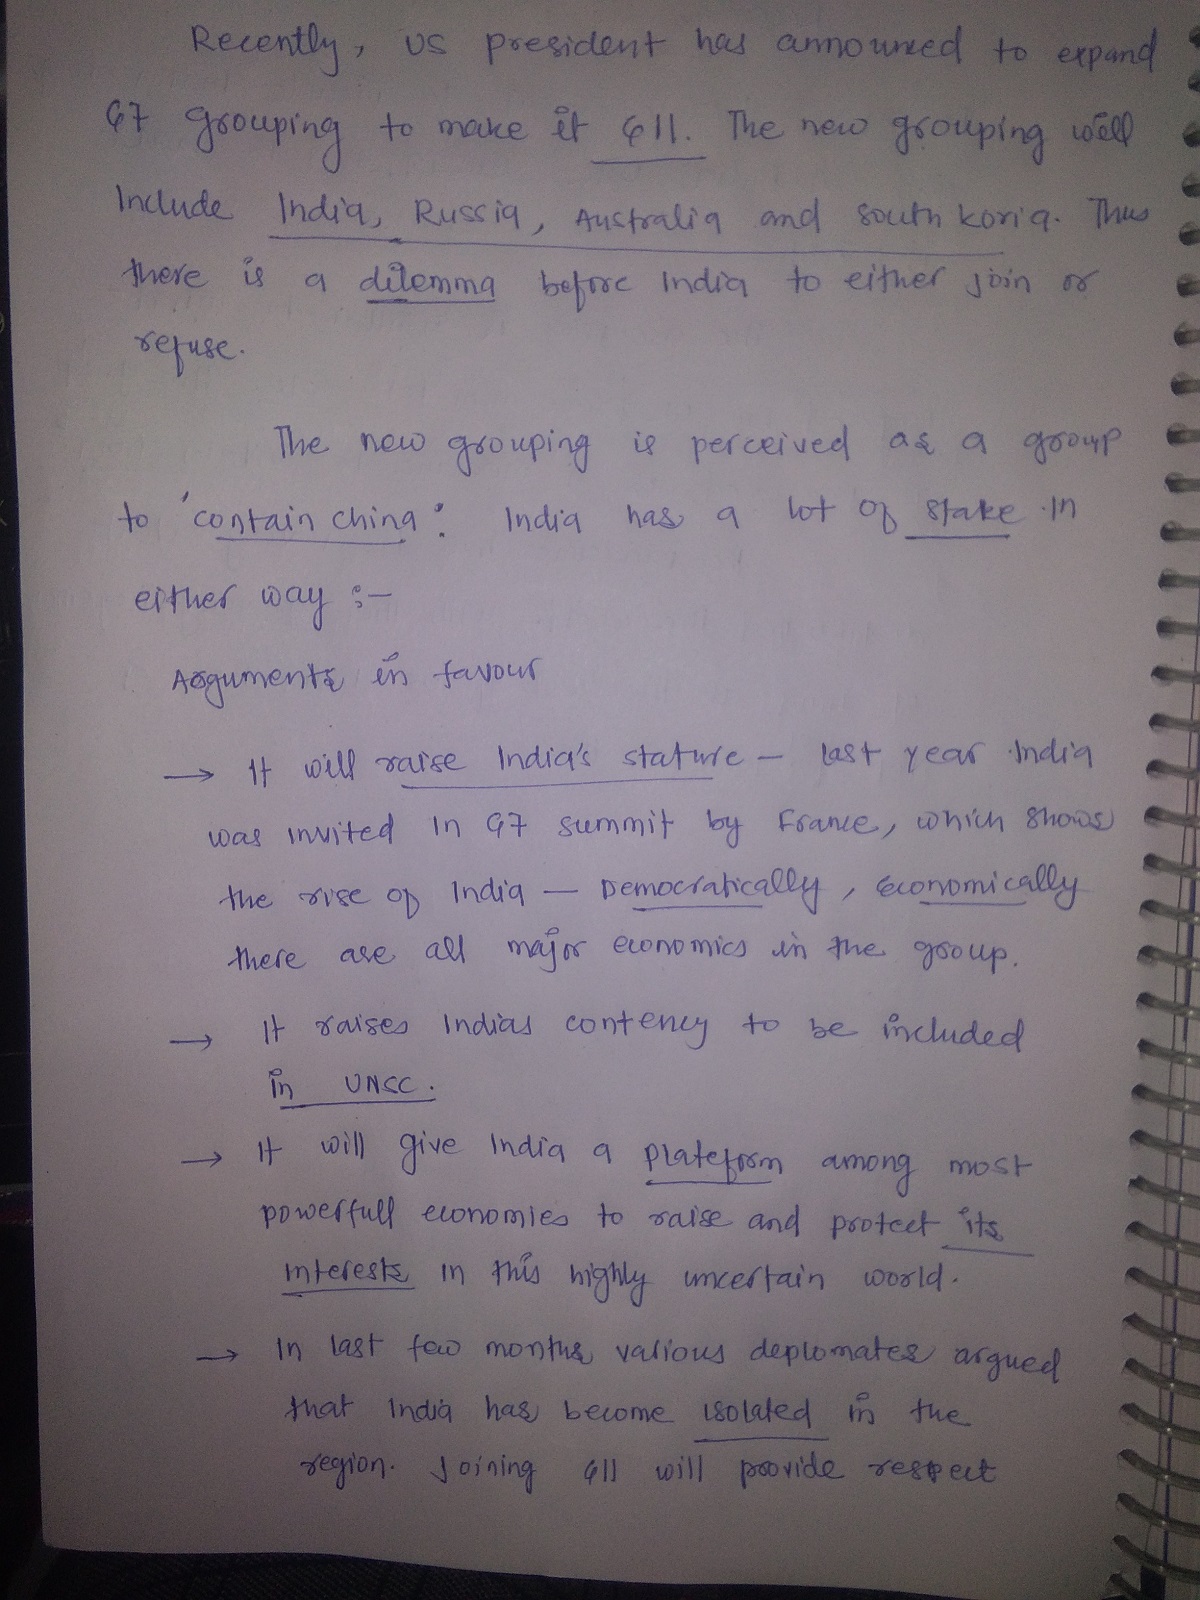 Recently, US president has announced to expand
G7 grouping to make it G11. The new grouping will
Include India, Russia, Australia and South Koria. Thus
there is a dilemma before India to either join or
refuse.
The new grouping is perceived as a group
to 'contain china'. India has a lot of stake in
either way :-
Arguments in favour
→ It will raise India's stature – last year India
was invited in G7 summit by France, which shows
the rise of India – Democratically, Economically
there are all major economics in the group.
→ It raises Indias contency to be included
in UNSC.
→ It will give India a plateform among most
powerfull economies to raise and protect its
interests in this highly uncertain world.
→ In last few months various deplomates argued
that India has become isolated in the
region. Joining G11 will provide respect